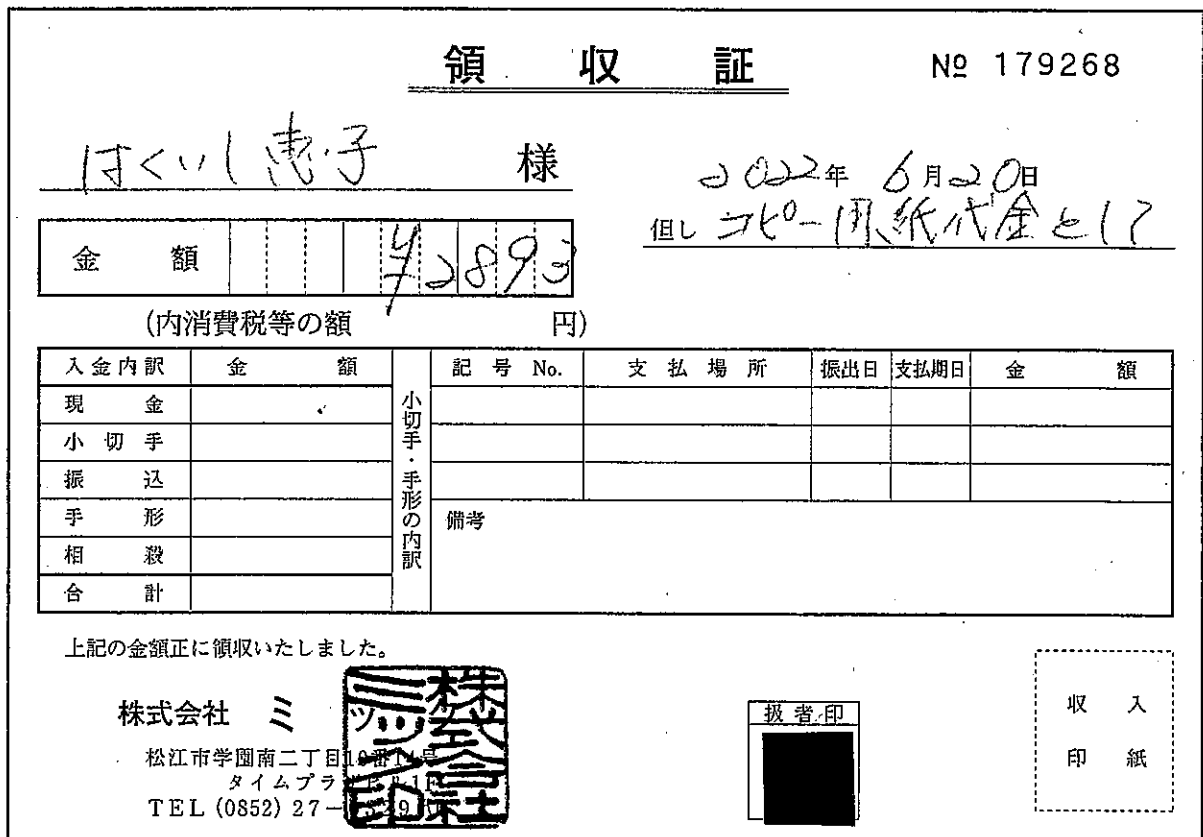 領収証
№ 179268
はくいし恵子 様
2022年 6月20日
但し コピー用紙代金として
金額 ¥2893
(内消費税等の額 円)
入金内訳 金額
現金
小切手
振込
手形
相殺
合計
小切手・手形の内訳
記号 No. 支払場所 振出日 支払期日 金額
備考
上記の金額正に領収いたしました。
株式会社 ミ
松江市学園南二丁目
タイムプラ
TEL (0852) 27-
株式会社ミック印
扱者印
収入
印紙